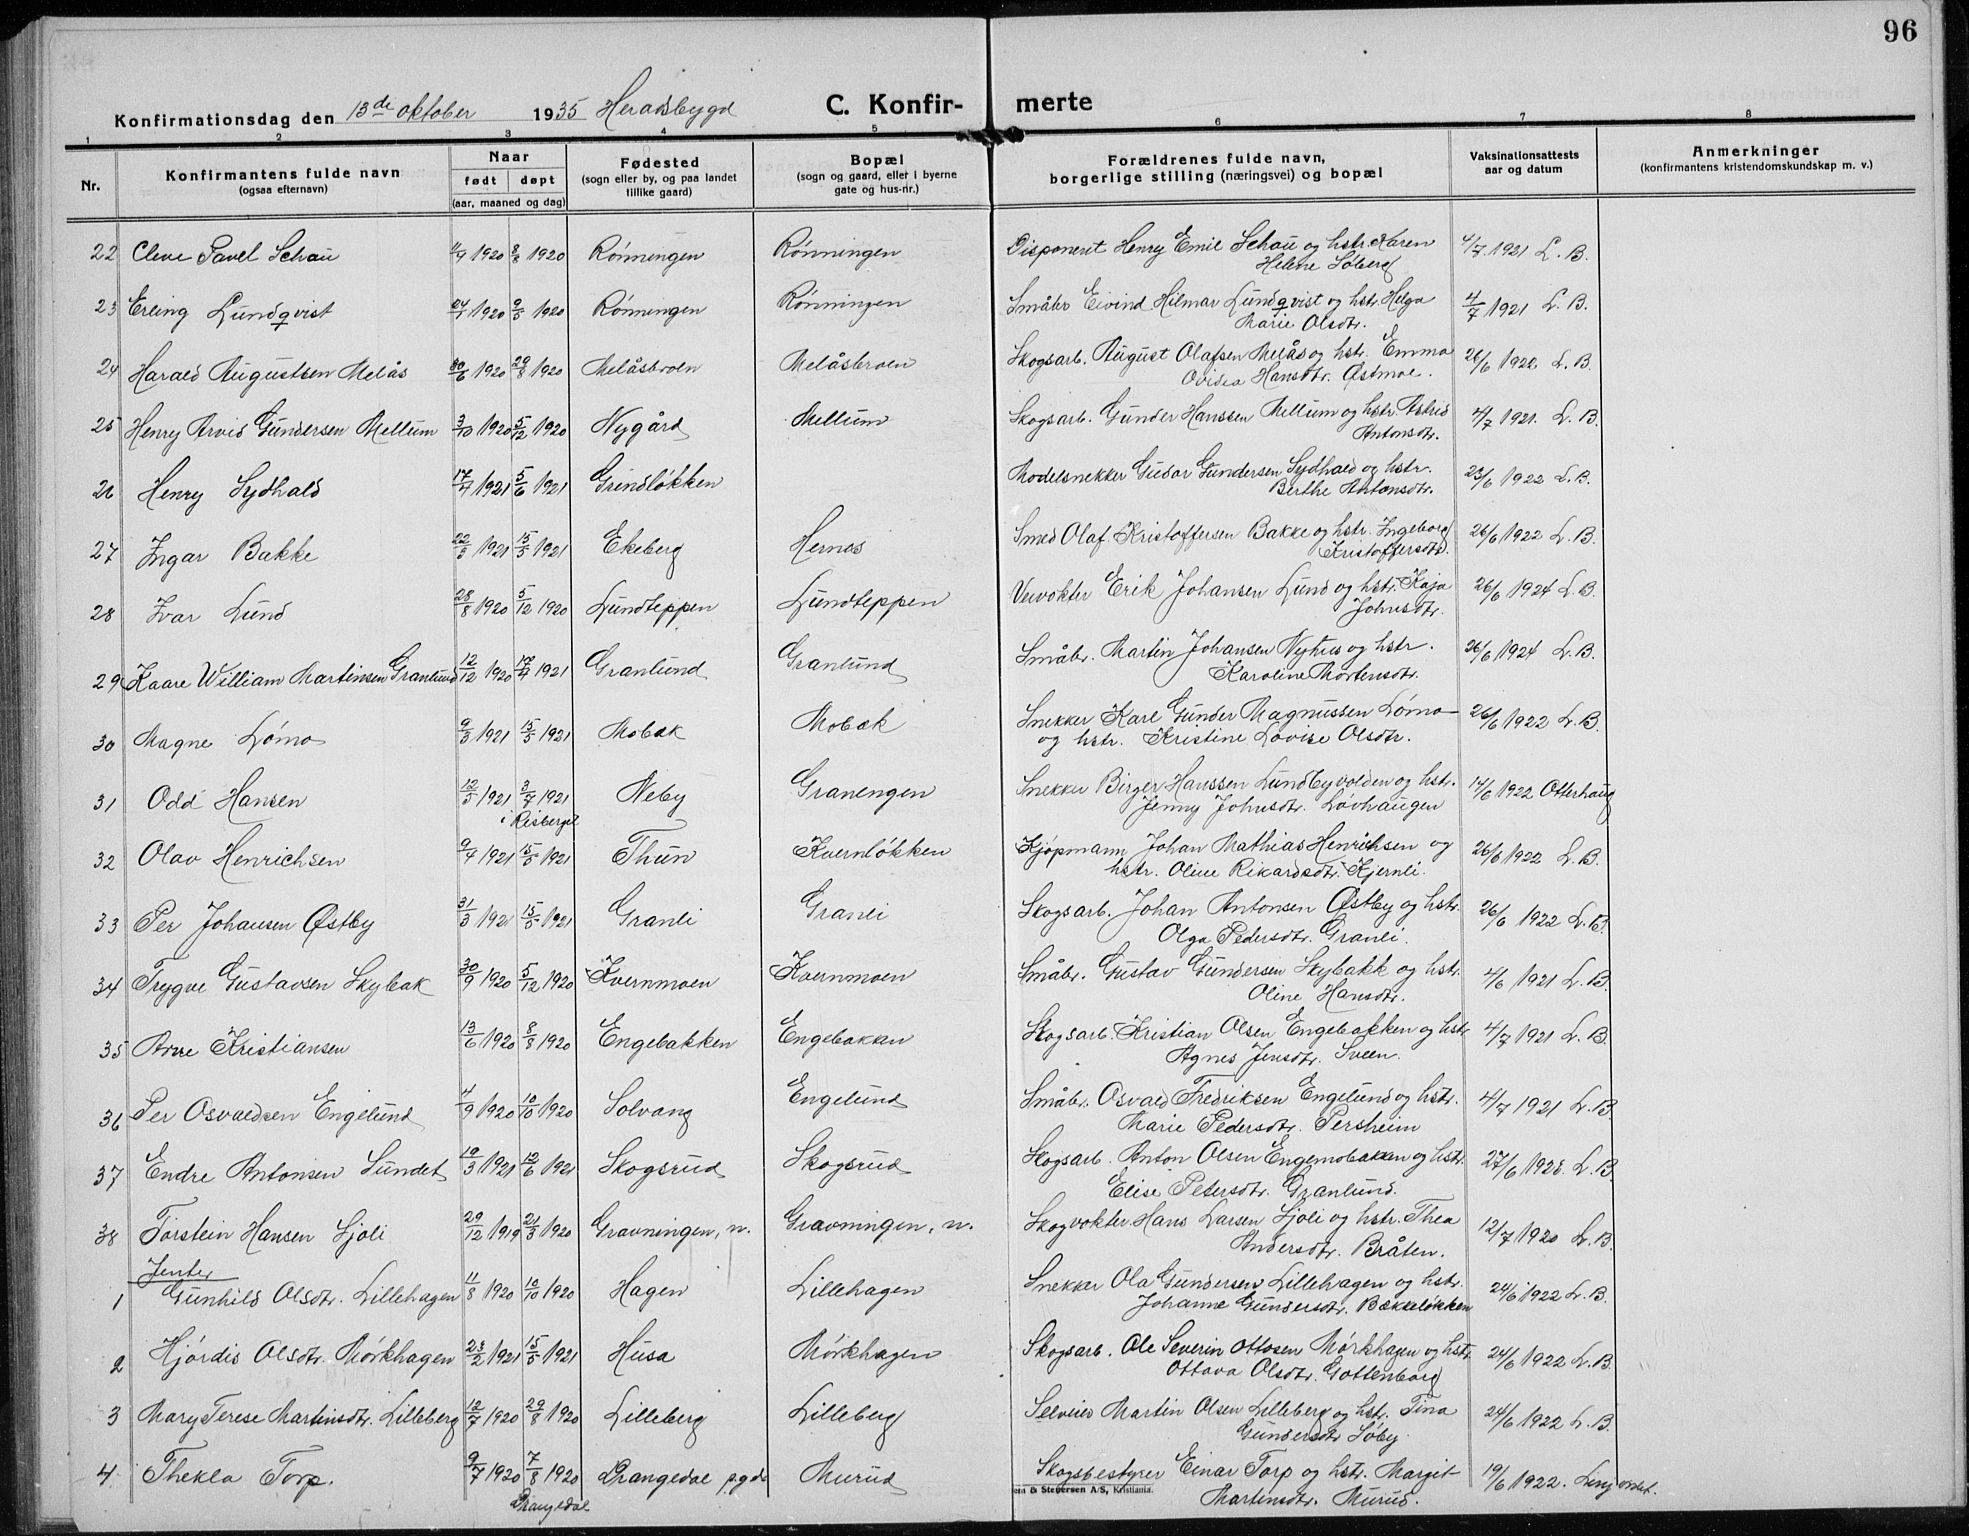 96
Konfirmationsdag den 13de oktober 1935 Heradsbygd C. Konfir- merte
1 2 3 4 5 6 7 8
Nr. Konfirmantens fulde navn (ogsaa efternavn) Naar født døpt (aar, maaned og dag) Fødested (sogn eller by, og paa landet tillike gaard) Bopæl (sogn og gaard, eller i byerne gate og hus-nr.) Forældrenes fulde navn, borgerlige stilling (næringsvei) og bopæl Vaksinationsattests aar og datum Anmerkninger (konfirmantens kristendomskundskap m. v.)
22 Cleve Pavel Schau 1920 8/8 1920 Rönningen Rönningen Disponent Henry Emil Schau og hstr. Karen 4/7 1921 L. B.
Helene Söberg
23 Erling Lundqvist 1920 9/5 1920 Rönningen Rönningen Småbr Eivind Hilmar Lundqvist og hstr. Helga 4/7 1921 L. B.
Marie Olsdtr.
24 Harald Augustsen Melås 30/6 1920 29/8 1920 Melåsbroen Melåsbroen Skogsarb. August Olafsen Melås og hstr. Emma 26/6 1922 L. B.
Ovidea Hansdtr. Østmoe.
25 Henry Arvid Gundersen Mellum 3/10 1920 5/12 1920 Nygård Mellum Skogsarb. Gunder Hanssen Mellum og hstr. Astrid 4/7 1921. L. B.
Antonsdtr.
26 Henry Sydhald 17/4 1921 5/6 1921 Grindlökken Modelsnekker Gudor Gundersen Sydhald og hstr. 23/6 1922 L. B.
Berthe Antonsdtr.
27 Ingar Bakke 22/3 1921 15/5 1921 Ekeberg Hernes Smed Olaf Kristoffersen Bakke og hstr. Ingeborg 26/6 1922 L. B.
Kristoffersdtr.
28 Ivar Lund 28/8 1920 5/12 1920 Lundteppen Lundteppen Veivokter Erik Johansen Lund og hstr. Kaja 26/6 1924 L. B.
Johnsdtr.
29 Kaare William Martinsen Granlund 12/12 1920 17/4 1921 Granlund Granlund Småbr. Martin Johansen Nyhus og hstr. 26/6 1924 L. B.
Karoline Mortensdtr.
30 Magne Lömo 9/3 1921 15/5 1921 Mobæk Mobæk Snekker Karl Gunder Magnussen Lömo 26/6 1922 L. B.
og hstr. Kristine Lovise Olsdtr.
31 Odd Hansen 12/5 1921 3/7 1921 Neby Granengen Snekker Birger Hanssen Lundbyvolden og hstr. 14/6 1922 Otterhaug
i Risberget Jenny Johnsdtr. Lövhaugen
32 Olav Henrichsen 9/4 1921 15/5 1921 Thun Kvernlökken Kjøpmann Johan Mathias Henrichsen og 26/6 1922 L. B.
hstr. Oline Rikardsdtr. Kjernli.
33 Per Johansen Østby 31/3 1921 15/5 1921 Granli Granli Skogsarb. Johan Antonsen Østby og hstr. 26/6 1922 L. B.
Olga Pedersdtr. Granli.
34 Trygve Gustavsen Skybak 30/9 1920 5/12 1920 Kvernmoen Kvernmoen Småbr. Gustav Gundersen Skybakk og hstr. 4/6 1921 L. B.
Oline Hansdtr.
35 Arne Kristiansen 13/6 1920 8/8 1920 Engebakken Engebakken Skogsarb. Kristian Olsen Engebakken og hstr 4/7 1921 L. B.
Agnes Jensdtr. Sveen.
36 Per Osvaldsen Engelund 4/9 1920 10/10 1920 Solvang Engelund Småbr. Osvald Fredriksen Engelund og hstr. 4/7 1921 L. B.
Marie Pedersdtr. Persheim
37 Endre Antonsen Sundet 10/3 1921 12/6 1921 Skogsrud Skogsrud Skogsarb. Anton Olsen Engemobakken og hstr. 27/6 L. B.
Elise Petersdtr. Granlund.
38 Torstein Hansen Sjöli 29/12 1919 21/3 1920 Gravningen, n. Gravningen, n. Skogvokter Hans Larsen Sjöli og hstr. Thea 12/7 1920 L. B.
Andersdtr. Bråten.
Jenter
1 Gunhild Olsdtr. Lillehagen 11/8 1920 10/10 1920 Hagen Lillehagen Snekker Ola Gundersen Lillehagen og hstr. 24/6 1922 L. B.
Johanne Gundersdtr. Bækkeløkken
2 Hjördis Olsdtr. Mörkhagen 23/2 1921 15/5 1921 Husa Mörkhagen Skogsarb. Ole Severin Ottosen Mörkhagen og hstr 24/6 1922 L. B.
Ottava Olsdtr. Gottenborg
3 Mary Terese Martinsdtr. Lilleberg 12/7 1920 29/8 1920 Lilleberg Lilleberg Selveier Martin Olsen Lilleberg og hstr. Tina 24/6 1922 L. B.
Gundersdtr Söby.
4 Thekla Torp. 9/7 1920 7/8 1920 Drangedal pgd. Murud Skogsbestyrer Einar Torp og hstr. Margit 19/6 1922.
Drangedal & Stenersen A/S, Kristiania. Martinsdtr. Murud.